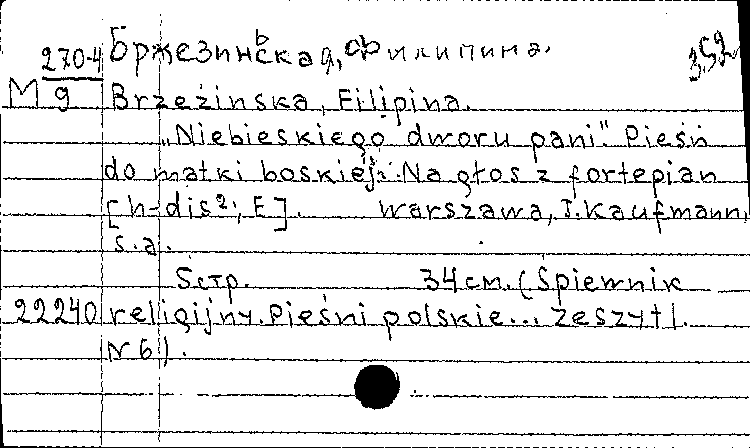 Бржезиньская, Филипина.
352
М 270-4/9
Brzezińska, Filipina.
„Niebieskiego dworu pani". Pieśń
do matki boskiej. Na głos z fortepian
[h-dis²; E]. Warszawa, J. Kaufmann,
s.a.
5 стр. 34 см. (Śpiewnik
22240 religijny. Pieśni polskie... zeszyt I.
N 6).